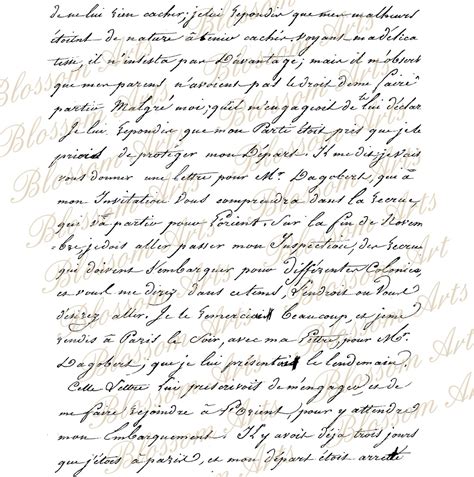 de ne lui rien cacher; je lui repondis que mes malheurs
étoient de nature à tenir cachés, voyant ma délica
tesse, il n'insista pas Davantage; mais il m'observa
que mes parens n'avoient pas le droit de me faire
partir, Malgré moi; qu'il m'engageoit de le lui déclar
Je lui repondis, que mon Parti étoit pris que je le
priois de protéger mon Départ. Il me dit, je vais
vous donner une lettre pour Mr. Dagobert, qui à
mon Invitation vous comprendra dans la Recrue
qui va partir pour l'orient. Sur la fin de Novem
bre je dois aller passer mon Inspection, des Recrues
qui doivent s'embarquer pour différentes Colonies,
et vous me direz dans ce tems, l'endroit ou vous
désirez aller. Je le Remerciai Beaucoup, et je me
rendis à Paris le Soir, avec ma lettre, pour Mr.
Dagobert, que je lui présentai le lendemain.
Cette Lettre lui prescrivoit de m'engager, et de
me faire Rejoindre à l'Orient, pour y attendre
mon Embarquement. Il y avoit déja trois jours
que j'étois à paris, et mon départ étoit arrêté
Blossom Arts